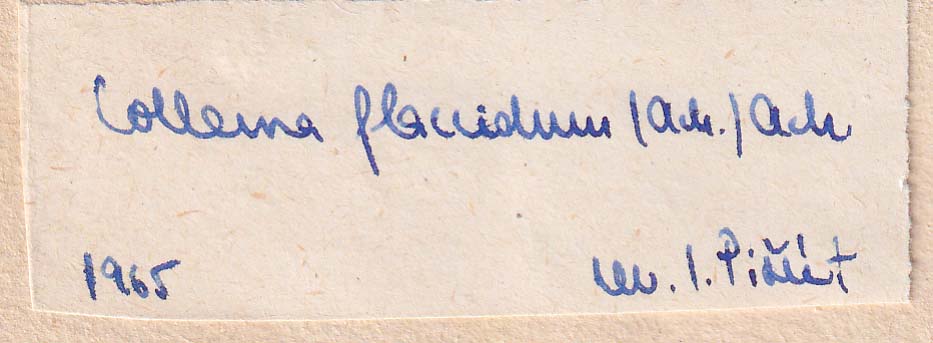 Collema flaccidum /Ach./ Ach
1965 rev. I. Pišút